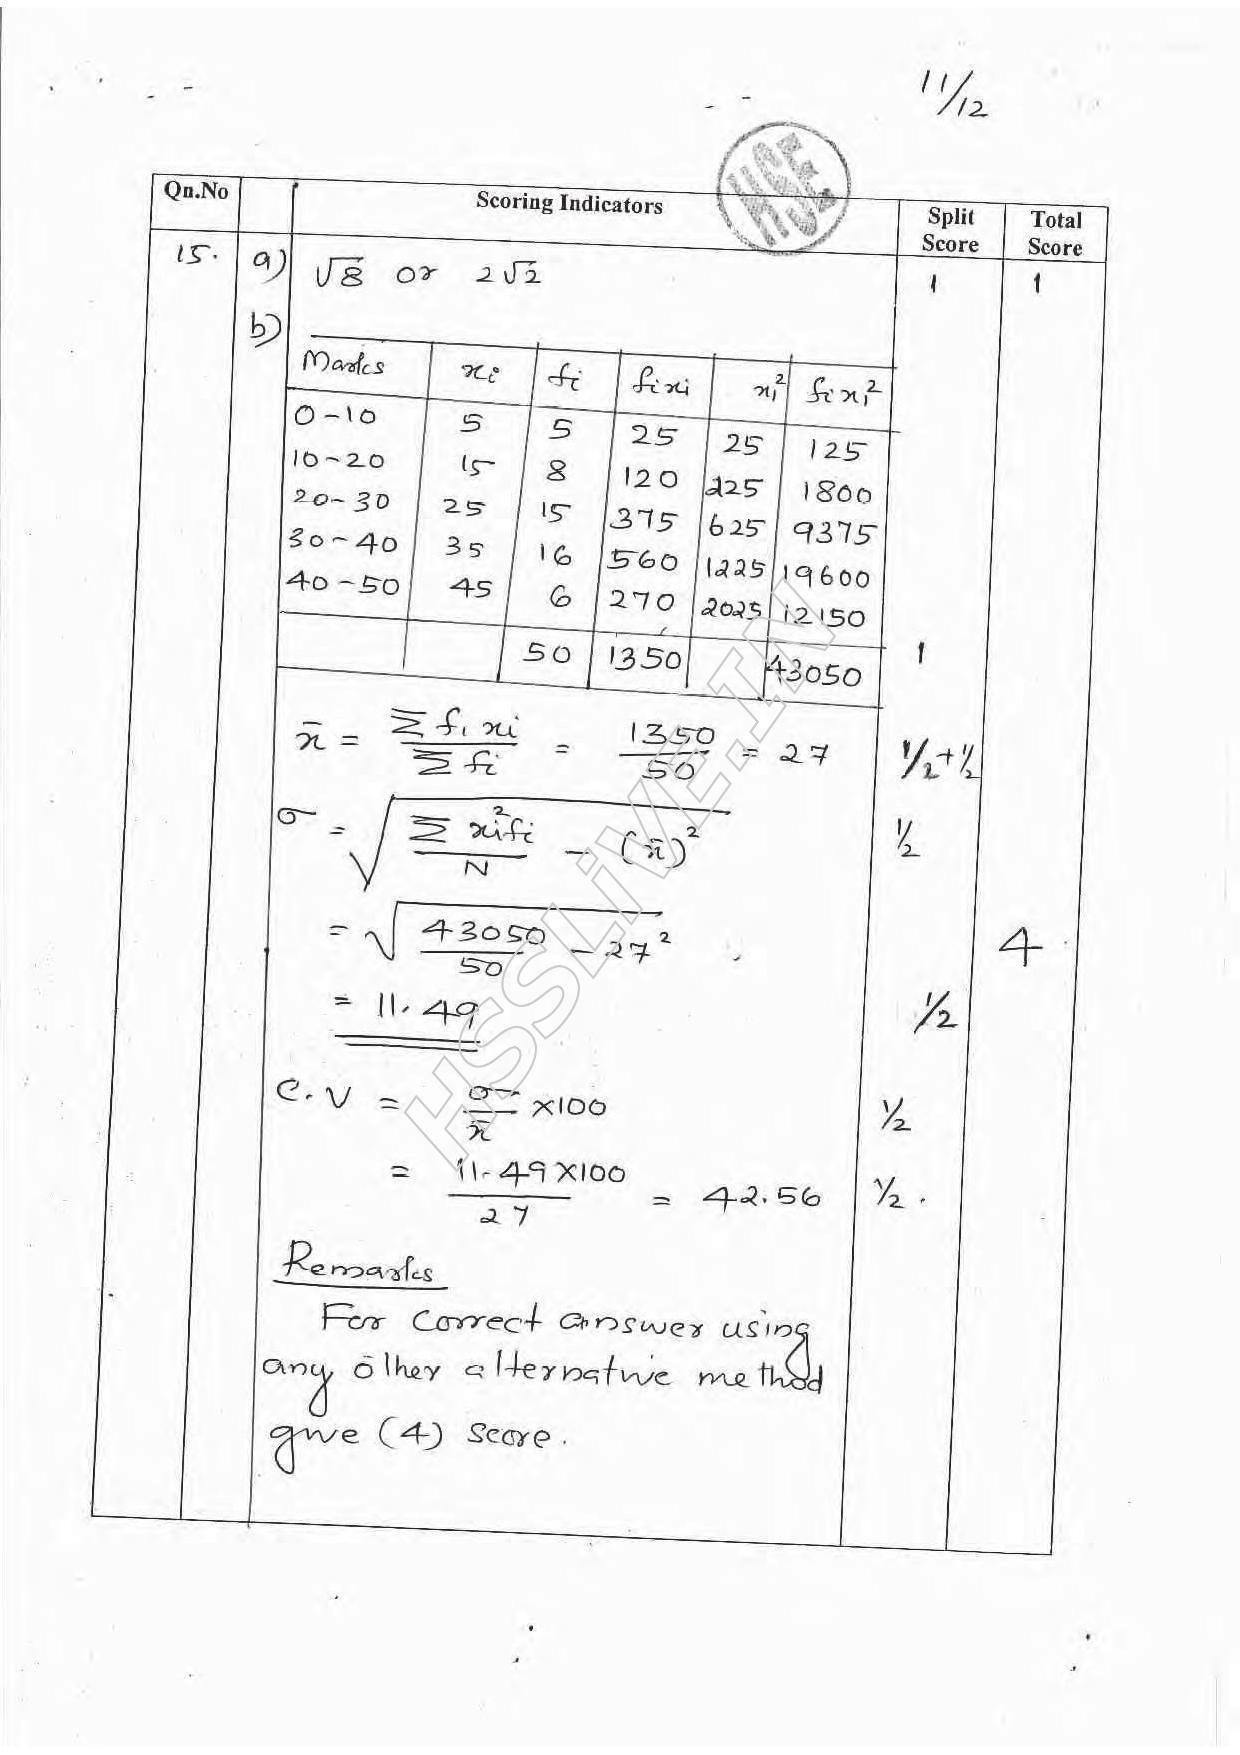 11/12
HSE
Qn.No Scoring Indicators Split Score Total Score
15. a) √8 or 2√2 1 1
b)
Marks xi fi fixi xi² fixi²
0-10 5 5 25 25 125
10-20 15 8 120 225 1800
20-30 25 15 375 625 9375
30-40 35 16 560 1225 19600
40-50 45 6 270 2025 12150
50 1350 43050 1
x̄ = Σ fi xi / Σ fi = 1350/50 = 27 1/2+1/2
σ = √(Σ xi²fi / N - (x̄)²) 1/2
= √(43050/50 - 27²) 4
= 11.49 1/2
C.V = σ/x̄ ×100 1/2
= 11.49×100 / 27 = 42.56 1/2.
Remarks
For correct answer using
any other alternative method
give (4) score.
HSSLiVE.IN